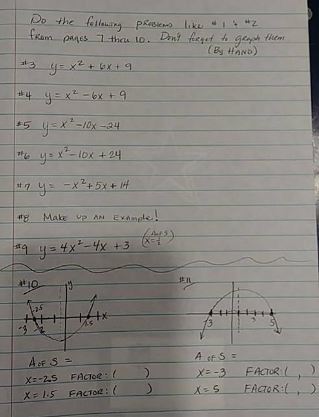 Do the following problems like #1 & #2
from pages 7 thru 10. Don't forget to graph them
(By HAND)
#3 y = x² + 6x + 9
#4 y = x² - 6x + 9
#5 y = x² - 10x - 24
#6 y = x² - 10x + 24
#7 y = -x² + 5x + 14
#8 Make up AN Example!
#9 y = 4x² - 4x + 3 (A of S x = 1/2)
#10 #11
y
-2.5
x
-3 -2 1.5 -3 3 5
A of S = A of S =
x = -2.5 FACTOR: ( ) x = -3 FACTOR: ( , )
x = 1.5 FACTOR: ( ) x = 5 FACTOR: ( , )